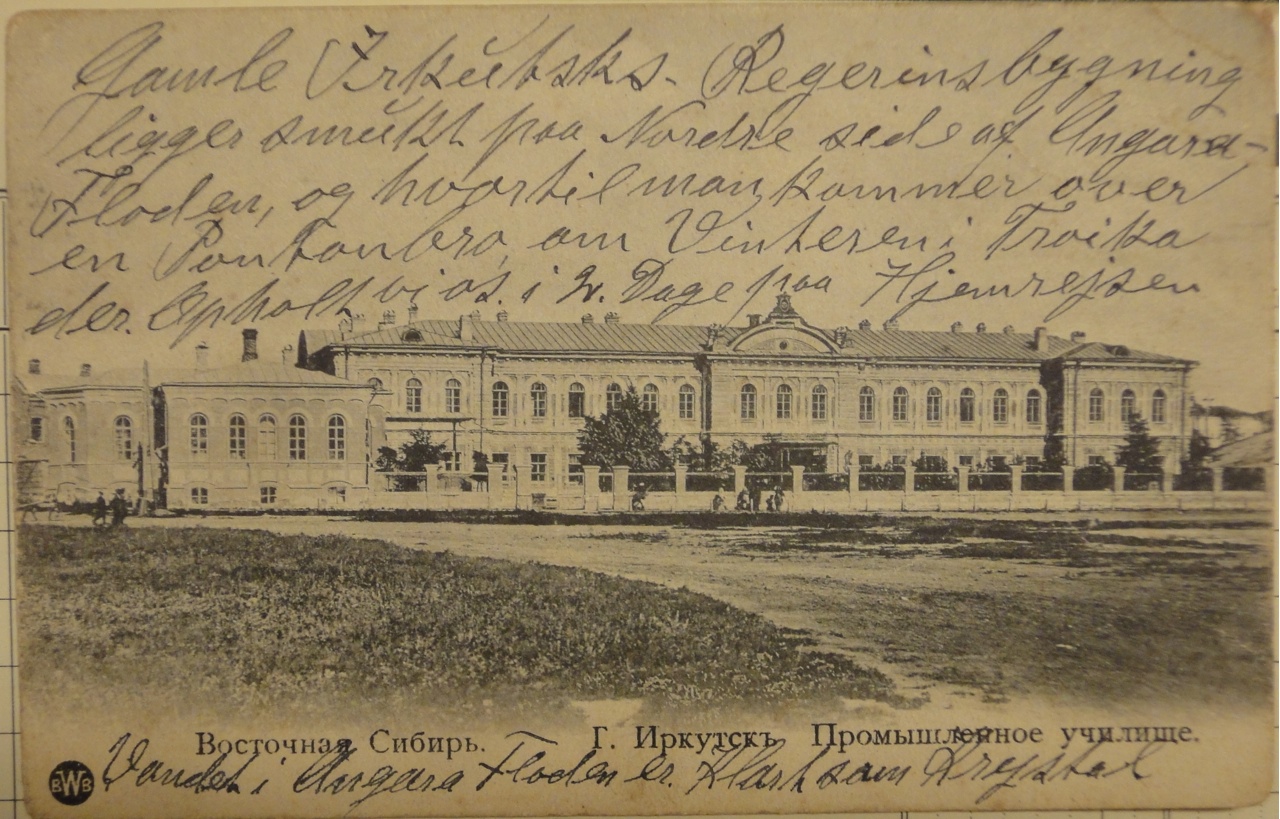 Gamle Irkŭtsks - Regerinsbygning
ligger smŭkt paa Nordre side af Angara-
Floden, og hvortil man kommer over
en Pontonbro, om Vinteren i Troika
der. Opholt vi os. i 2. Dage paa Hjemrejsen
Восточная Сибирь. Г. Иркутскъ. Промышленное училище.
Vandet i Angara Floden er. Klart som Krejstal
BWB